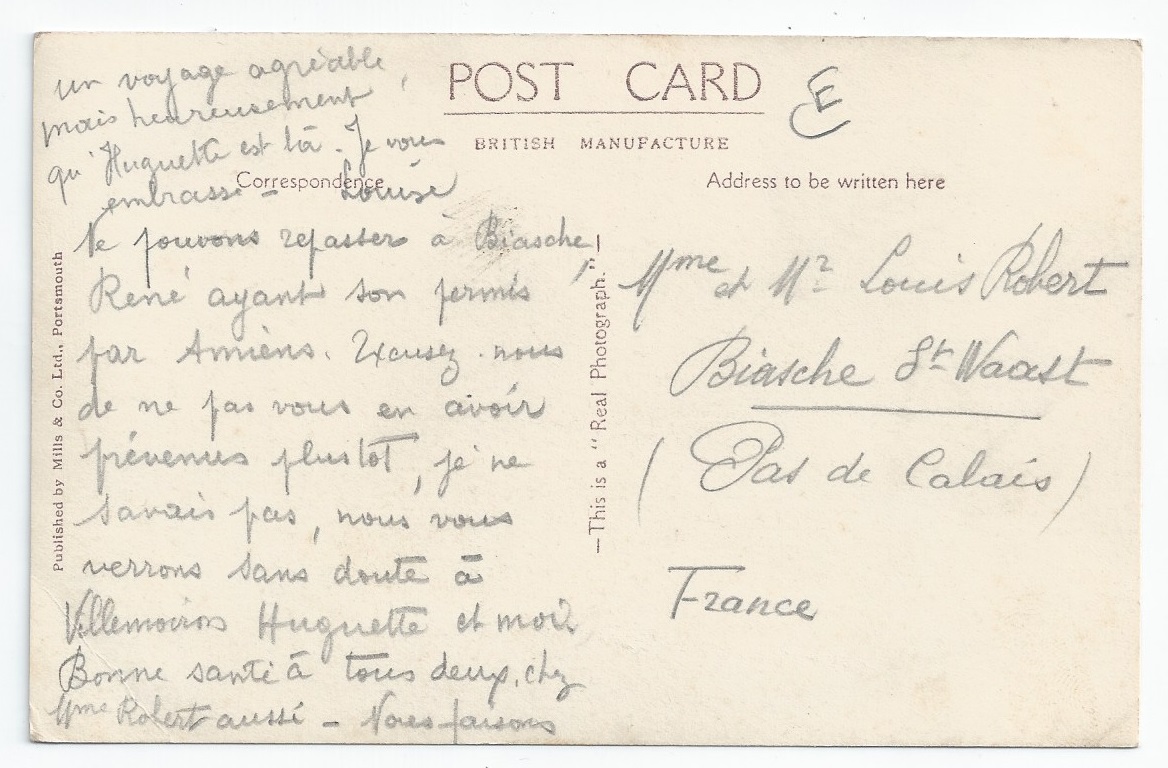 un voyage agréable,
mais heureusement
qu'Huguette est là. Je vous
embrasse - Louise
POST CARD
BRITISH MANUFACTURE
E
Correspondence
Address to be written here
Ne pouvons repasser à Biasche,
René ayant son permis
par Amiens. Excusez-nous
de ne pas vous en avoir
prévenus plustôt, je ne
savais pas, nous vous
verrons sans doute à
Villemoirons Huguette et moi.
Bonne santé à tous deux, chez
Mme Robert aussi - Nous faisons
Published by Mills & Co. Ltd., Portsmouth
—This is a "Real Photograph."—
Mme et Mr Louis Robert
Biasche St Waast
(Pas de Calais)
France